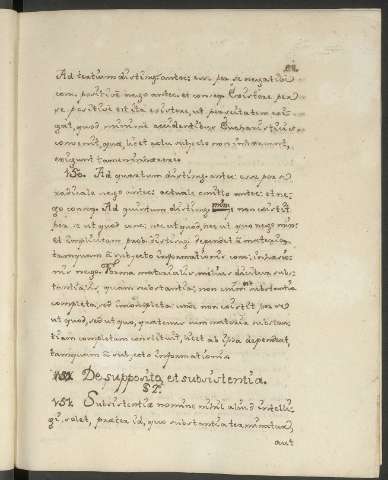 Ad tertium disting. antec: esse per se negative
con: positive nego antec. et conseq. Existere per
se positive est ita existere, ut perseitatem exi-
gat, quod minime accidentibus Eucharisticis
convenit, quæ, licet actu subjecto non inhæreant,
exigunt tamen inhærere.
150. Ad quartum disting. antec: esse per se
radicale nego antec: actuale omitto antec: et ne-
go conseq. Ad quintum disting. min: non existit
per se ut quod conc: nec ut quod, nec ut quo nego min:
et implicitam prob. disting. dependet a materia
tamquam a subjecto informationis con: inhæsio-
nis nego. Forma materialis melius dicitur subs-
tantialis, quam substantia; non enim est substantia
completa, sed incompleta: unde non existit per se
ut quod, sed ut quo, quatenus cum materia substan-
tiam completam constituit, licet ab ipsa dependeat
tamquam a subjecto informationis.
De supposito, et subsistentia.
§ 2.
151. Subsistentiæ nomine nihil aliud intelli-
gi solet, præter id, quo substantia terminatur,
aut